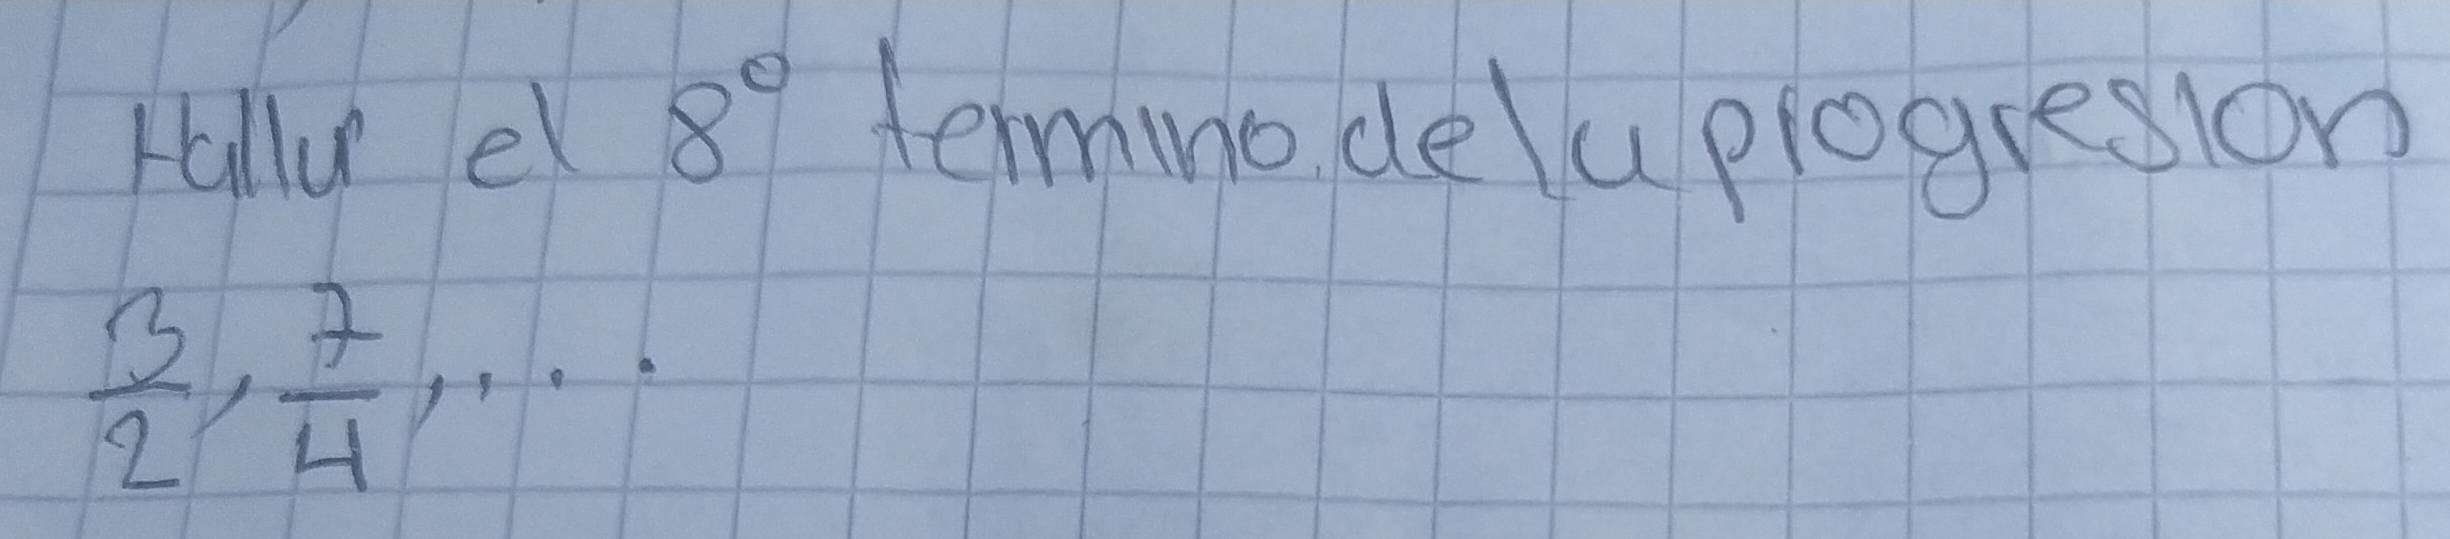 Hallar el 8° termino de la progresion
3/2, 7/4, ....